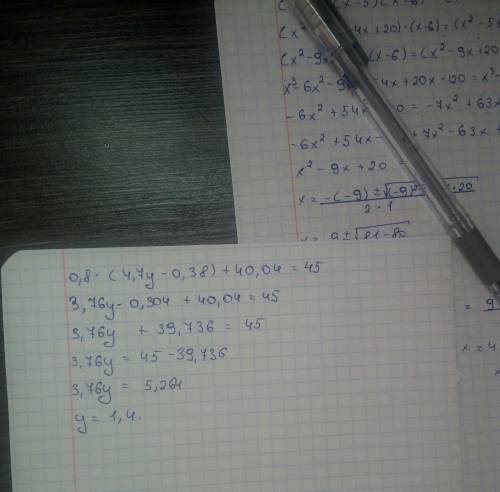 (x-5)(x-6)
4x+20)·(x-6)=(x²-5x
(x²-9x (x-6)=(x²-9x+20
x³-6x²-9x 4x+20x-120=x³-
-6x²+54x 0=-7x²+63x
-6x²+54x- +7x²-63x
x²-9x+20
x=-(-9)±√(-9)² ·20
2·1
9±√81-80
= 9
x=4
x
0,8·(4,7y-0,38)+40,04=45
3,76y-0,304+40,04=45
3,76y +39,736=45
3,76y=45-39,736
3,76y= 5,264
y=1,4.